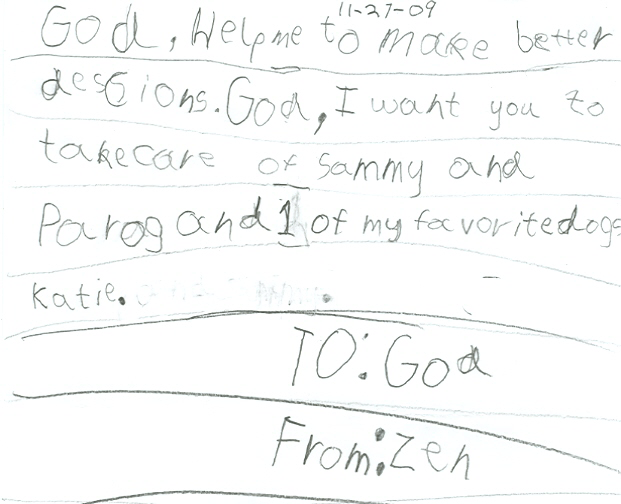 11-27-09
God, Help me to make better
desCions. God, I want you to
takecare of Sammy and
Parog and 1 of my favoritedogs
Katie.
TO: God
From: Zen